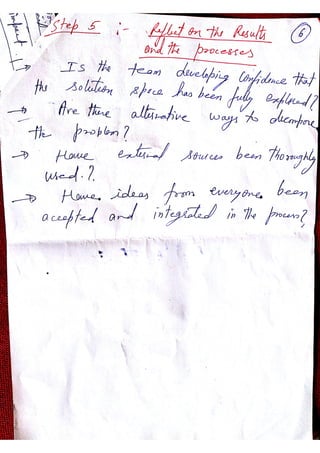 6
Step 5 :- Reflect on the Results
and the processes
→ Is the team developing confidence that
the solution space has been fully explored?
→ Are there alternative ways to decompose
the problem?
→ Have external sources been thoroughly
used.?.
→ Have ideas from everyone been
accepted and integrated in the process?